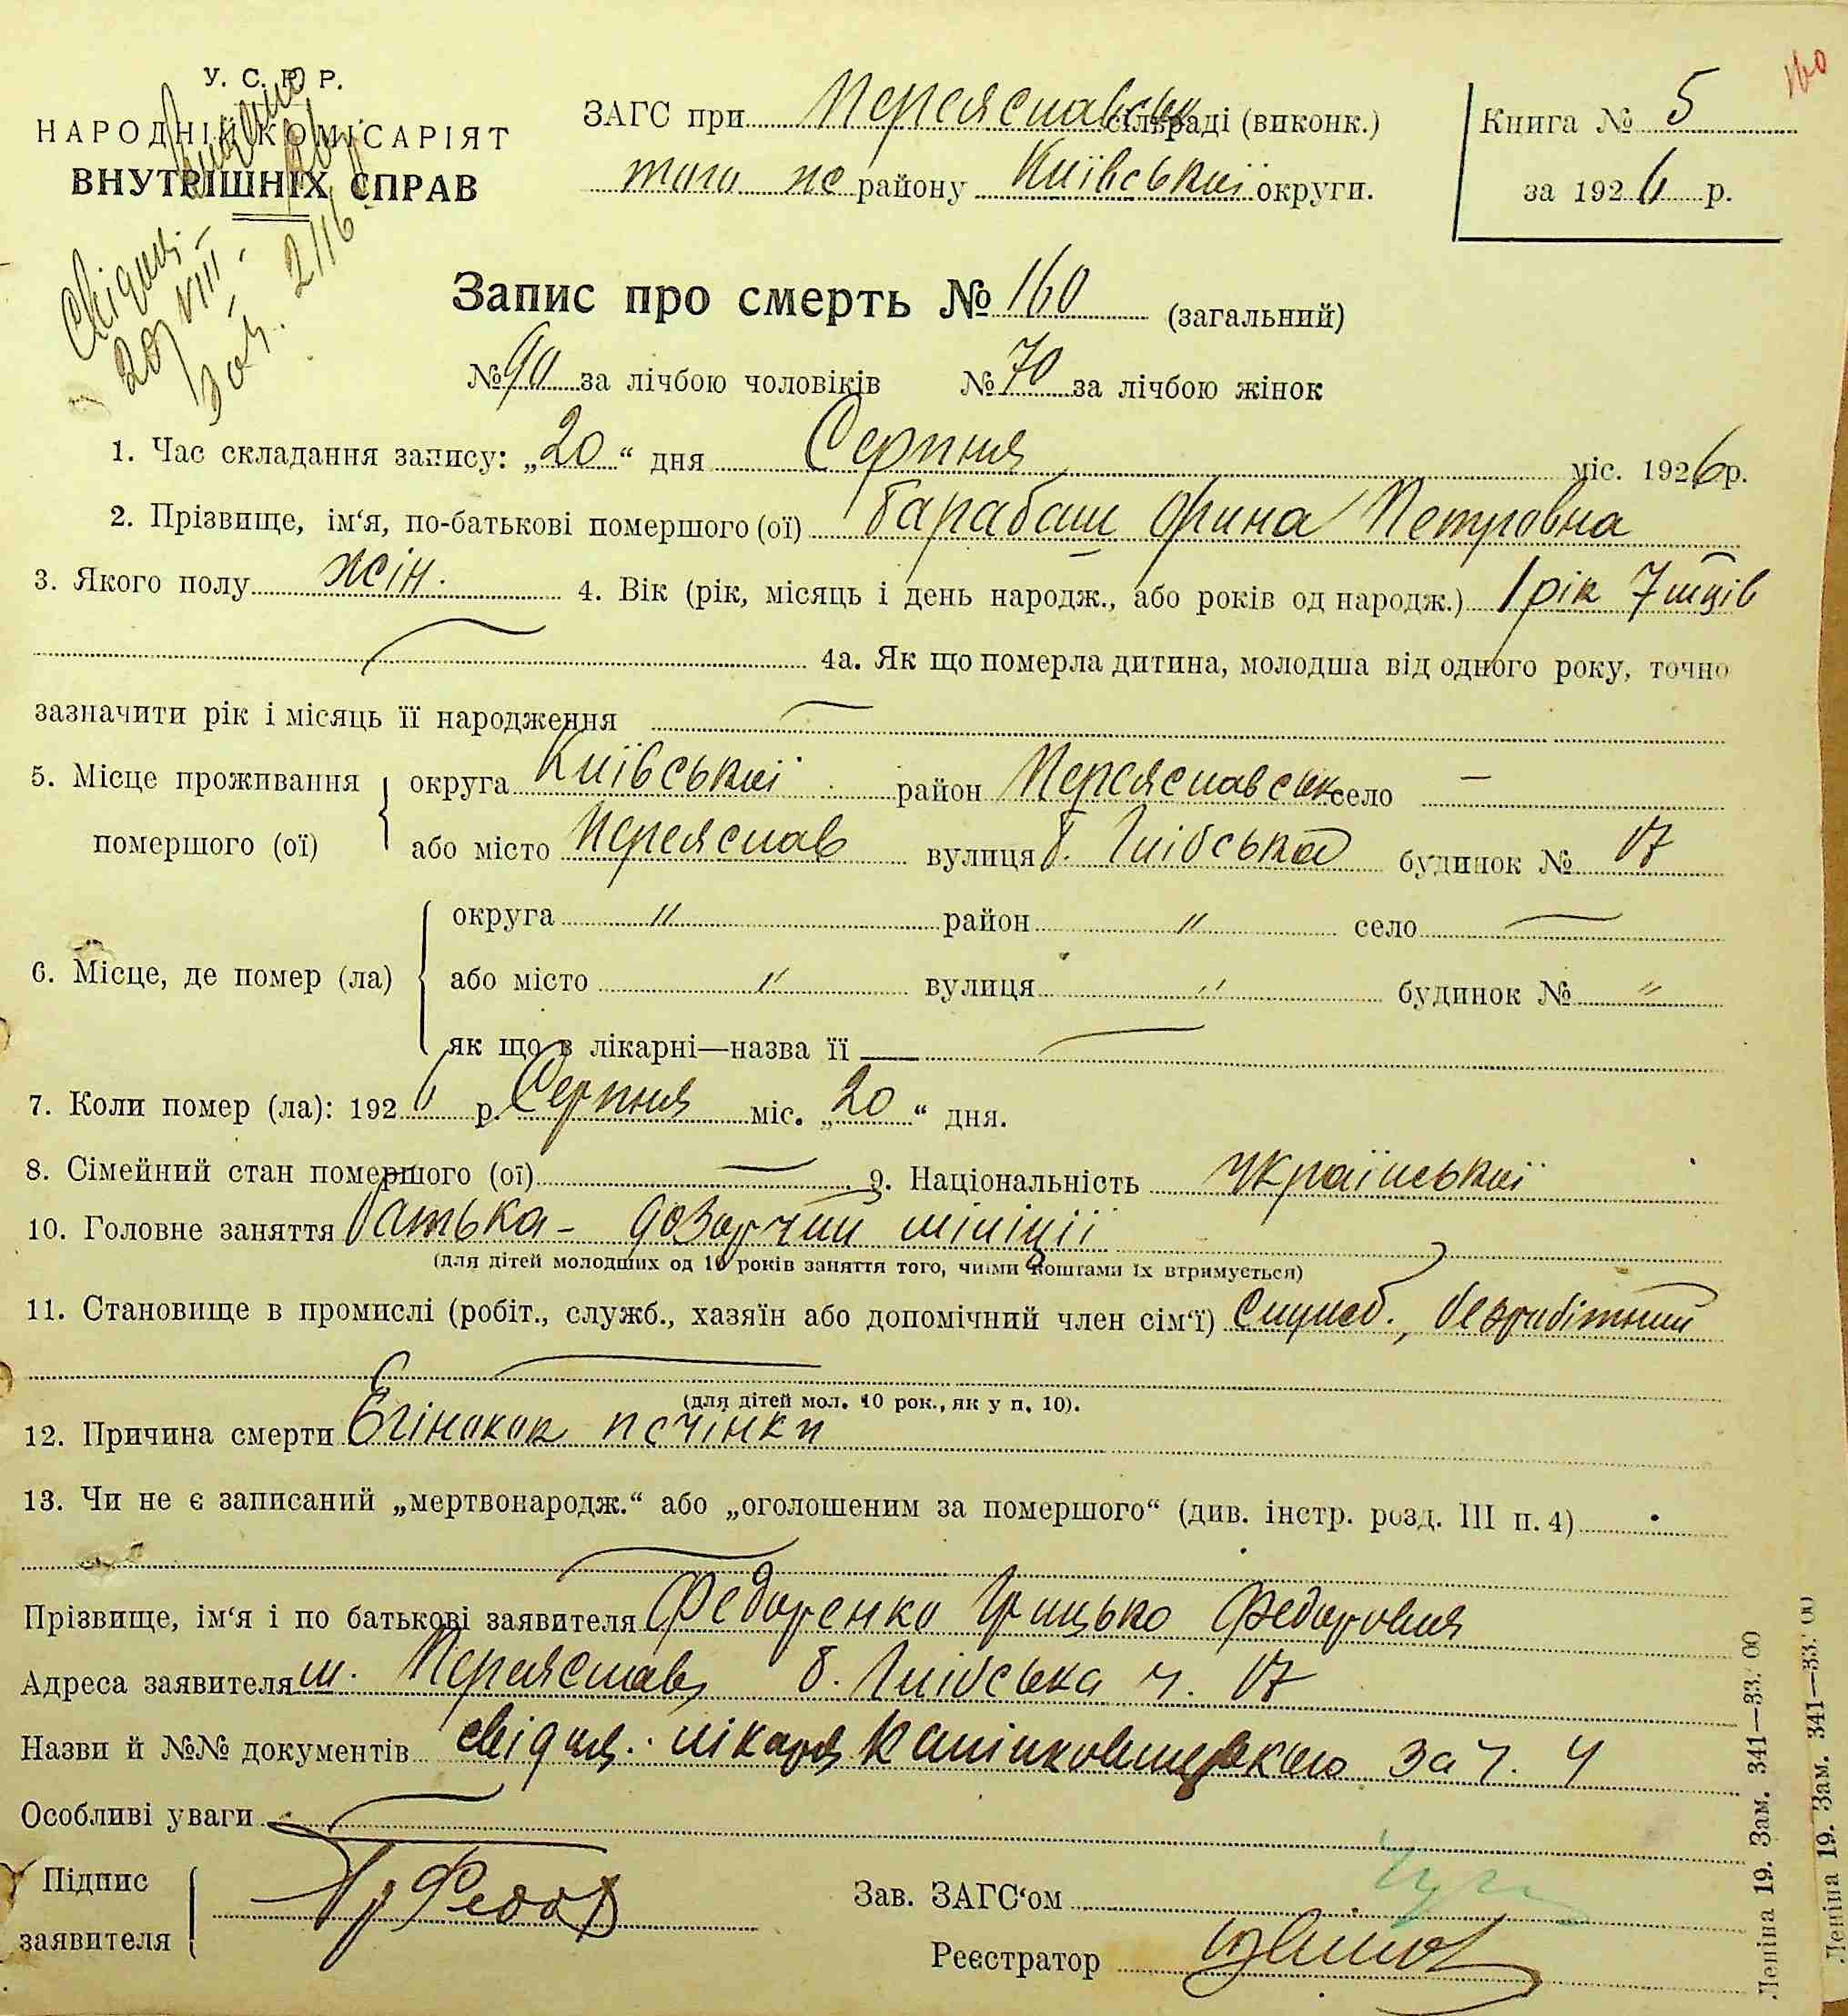 160
У. С. Р. Р.
НАРОДНІЙ КОМІСАРІЯТ
ВНУТРІШНІХ СПРАВ
ЗАГС при Переяславськ сільраді (виконк.)
того же району Київської округи.
Книга № 5
за 1926 р.
20/VIII
2116
Запис про смерть № 160 (загальний)
№ 90 за лічбою чоловіків № 70 за лічбою жінок
1. Час складання запису: „20“ дня Серпня міс. 1926 р.
2. Прізвище, ім‘я, по-батькові помершого (ої) Барабаш Орина Петровна
3. Якого полу жін. 4. Вік (рік, місяць і день народж., або років од народж.) 1 рік 7 м-ців
4а. Як що померла дитина, молодша від одного року, точно
зазначити рік і місяць її народження —
5. Місце проживання помершого (ої) округа Київської район Переяславськ село —
або місто Переяслав вулиця Б. будинок № 17
6. Місце, де помер (ла) округа " район " село —
або місто " вулиця " будинок № "
як що в лікарні—назва її —
7. Коли помер (ла): 1926 р. Серпня міс. „20“ дня.
8. Сімейний стан помершого (ої) — 9. Національність Української
10. Головне заняття батька - дозорчий міліції
(для дітей молодших од 10 років заняття того, чиїми коштами їх втримується)
11. Становище в промислі (робіт., служб., хазяїн або допомічний член сім‘ї) Служб., безробітний
(для дітей мол. 10 рок., як у п. 10).
12. Причина смерти Ехінокок печінки
13. Чи не є записаний „мертвонародж.“ або „оголошеним за помершого“ (див. інстр. розд. III п. 4)
Прізвище, ім‘я і по батькові заявителя Федоренко Грицько Федорович
Адреса заявителя м. Переяслав, Б. ч. 17
Назви й №№ документів свідоц. лікаря за ч. 4
Особливі уваги —
Підпис заявителя Гр Федор
Зав. ЗАГС‘ом
Реєстратор
Леніна 19. Зам. 341—33.000
Леніна 19. Зам. 341—33.000